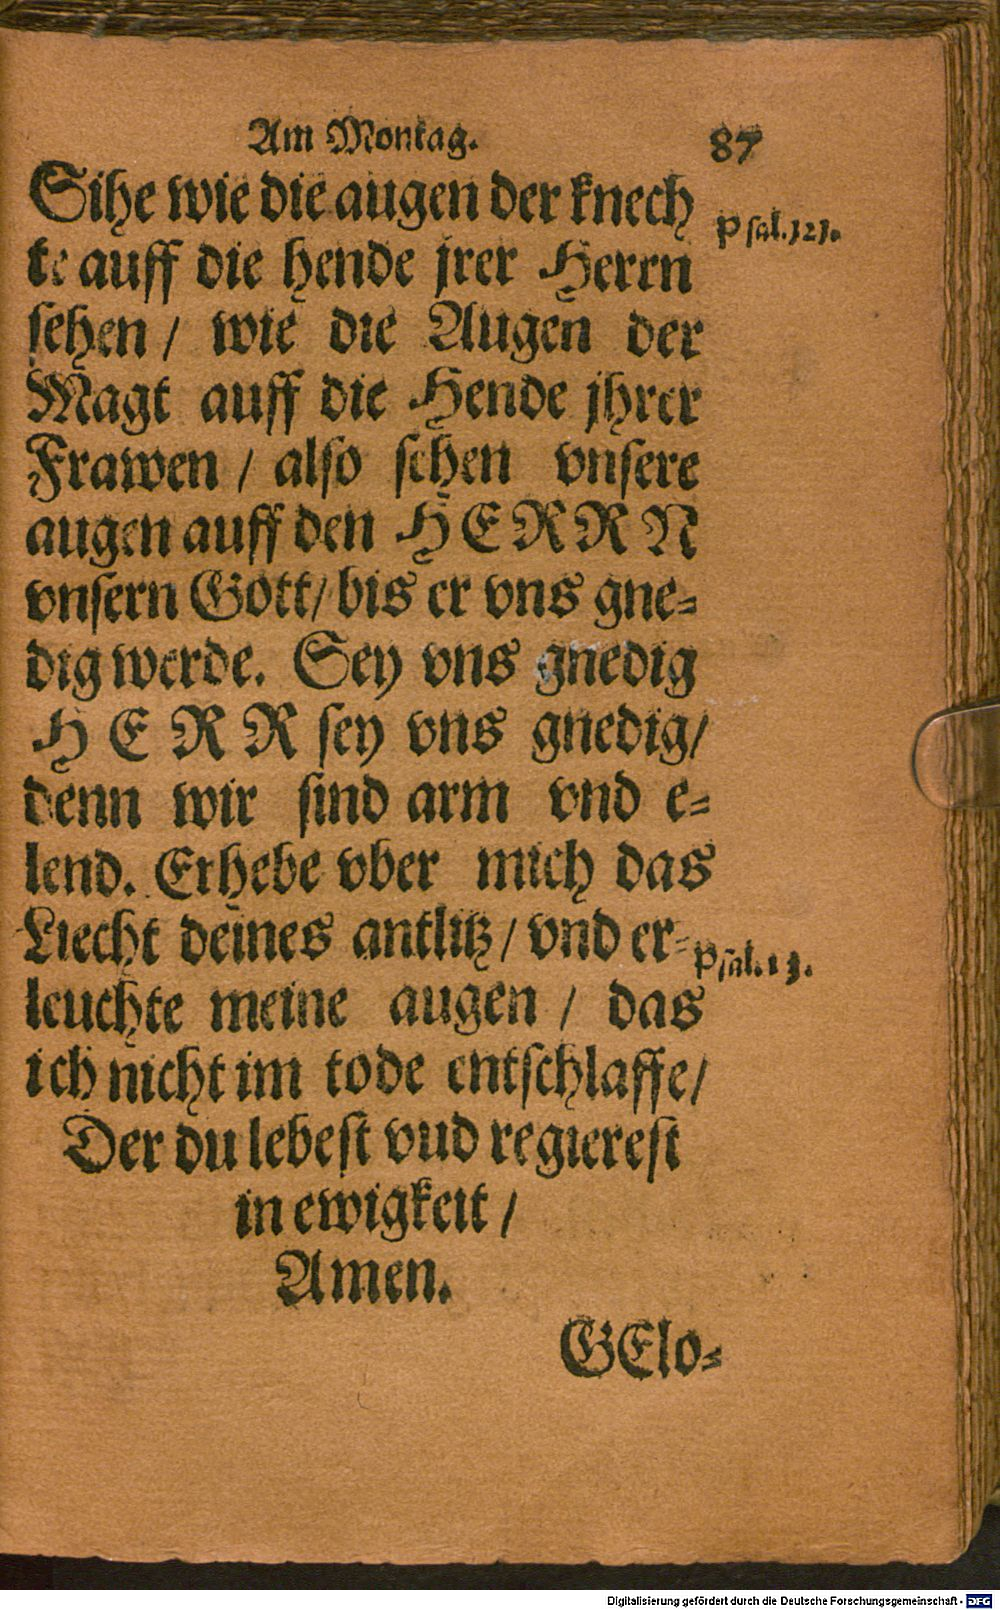 Am Montag. 87
Sihe wie die augen der knech
te auff die hende jrer Herrn
sehen / wie die Augen der
Magt auff die Hende jhrer
Frawen / also sehen vnsere
augen auff den HERRN
vnsern Gott / bis er vns gne-
dig werde. Sey vns gnedig
HERR sey vns gnedig /
denn wir sind arm vnd e-
lend. Erhebe vber mich das
Liecht deines antlitz / vnd er-
leuchte meine augen / das
ich nicht im tode entschlaffe /
Der du lebest vud regierest
in ewigkeit /
Amen.
GElo-
Psal. 121.
Psal. 13.
Digitalisierung gefördert durch die Deutsche Forschungsgemeinschaft - DFG